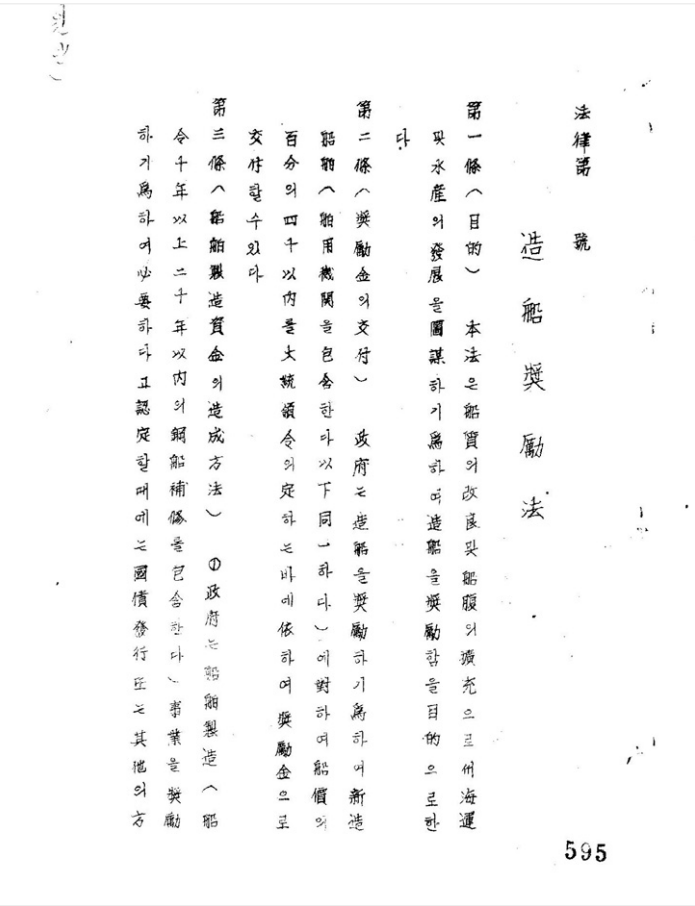 원본)
法律第 號
造船獎勵法
第一條(目的) 本法은船質의改良및船腹의擴充으로서海運
및水産의發展을圖謀하기爲하여造船을獎勵함을目的으로한
다.
第二條(獎勵金의交付) 政府는造船을獎勵하기爲하여新造
船舶(舶用機關을包含한다以下同一하다.)에對하여船價의
百分의四十以內를大統領令의定하는바에依하여獎勵金으로
交付할수있다
第三條(船舶製造資金의造成方法) ①政府는船舶製造(船
令十年以上二十年以內의鋼船補修를包含한다)事業을獎勵
하기爲하여必要하다고認定할때에는國債發行또는其他의方
595